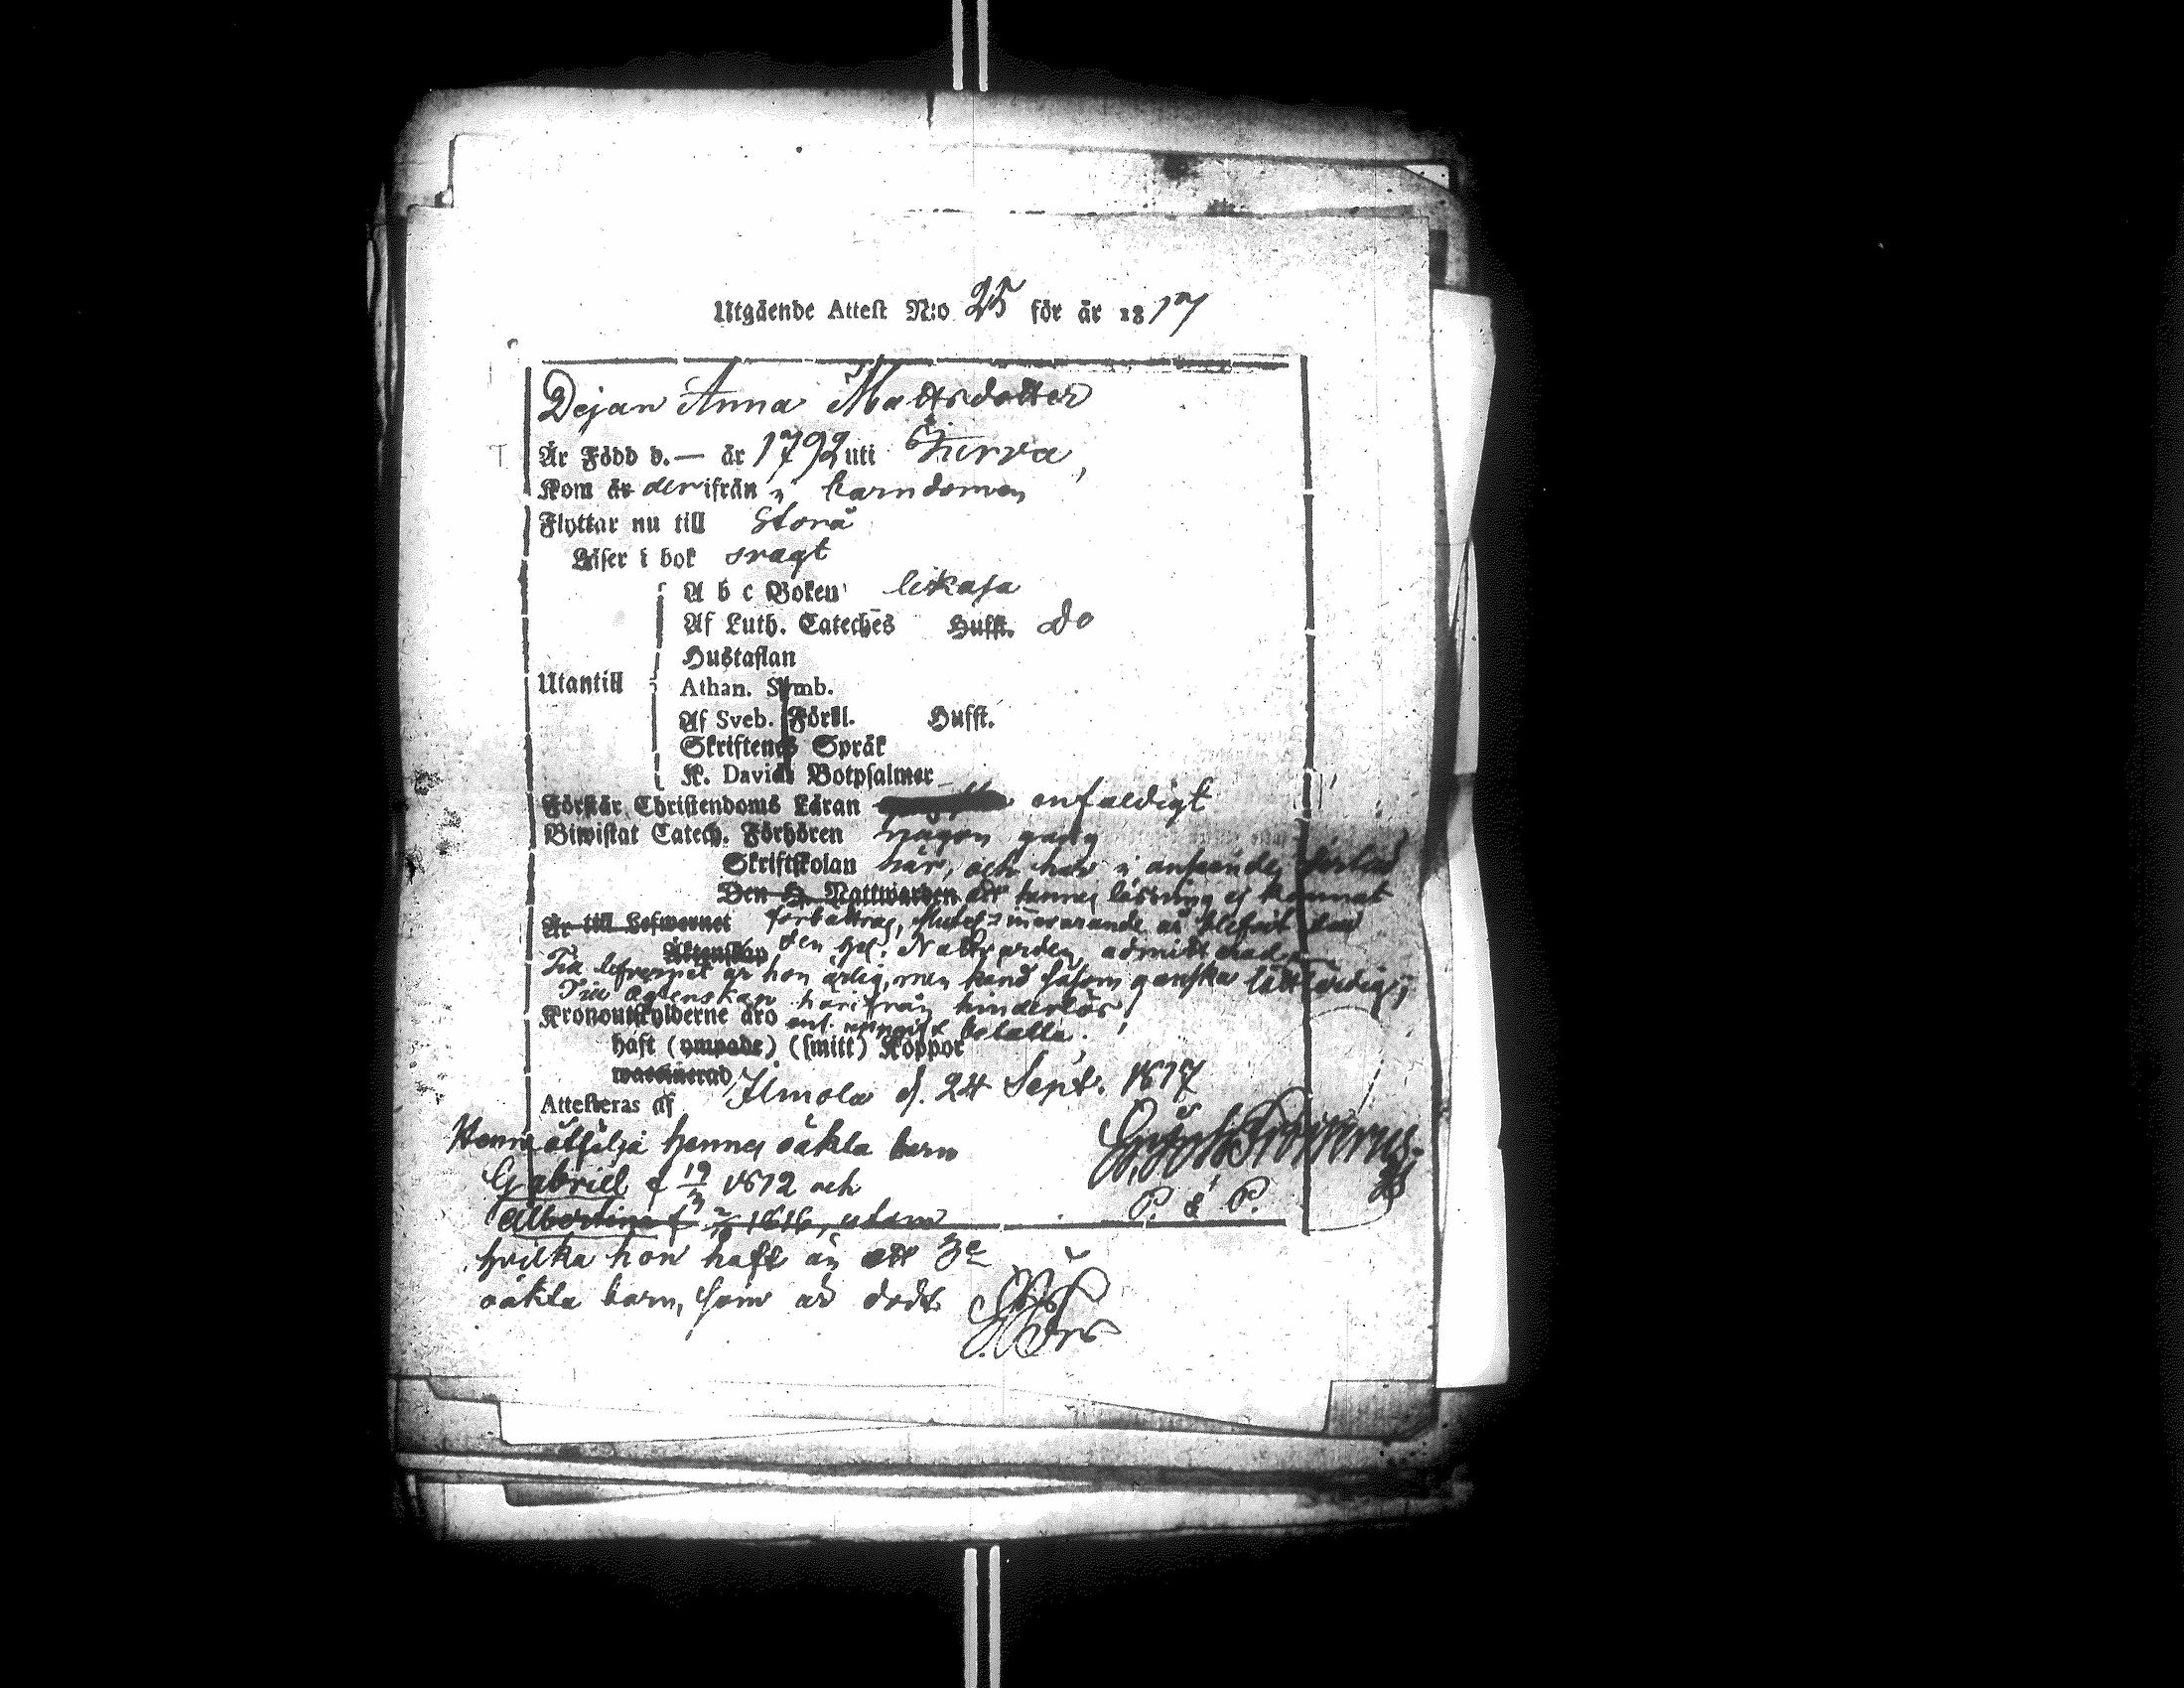 Utgående Attest N:o 25 för år 1817
Dejan Anna Mattsdotter
Är Född d.— år 1792 uti Jurva,
Kom år derifrån i barndomen
Flyttar nu till Storå
Läser i bok svagt
A b c Boken likaså
Af Luth. Catechēs Husft. do
Hustaflan
Utantill
Athan. Symb.
Af Sveb. Förkl. Husft.
Skriftenes Språk
K. Davids Botpsalmer
Förstår Christendoms Läran enfaldigt
Biwistat Catech. Förhören någon gång
Skriftskolan här, och har i anseende
Den H. Nattwarden att hennes läsning ej kunnat
Är till Lefwernet förbättras, är blefvit
Äktenskap den Hel. Nattvarden admitterad
Till lefvernet är hon ärlig, men känd såsom ganska lättfärdig;
Till ägtenskap härifrån hinderlös;
Kronoutskylderne äro betalta.
haft (ympade) (smitt) Koppor
waccinerad
Attesteras af Ilmola d. 24 Sept. 1817
Henne åtfölja hennes oäkta barn
Gabriel f 19/3 1812 och
P. & P.
Albertina f 1816, utom
hvilka hon haft än ett 3e
oäkta barn, som är dödt